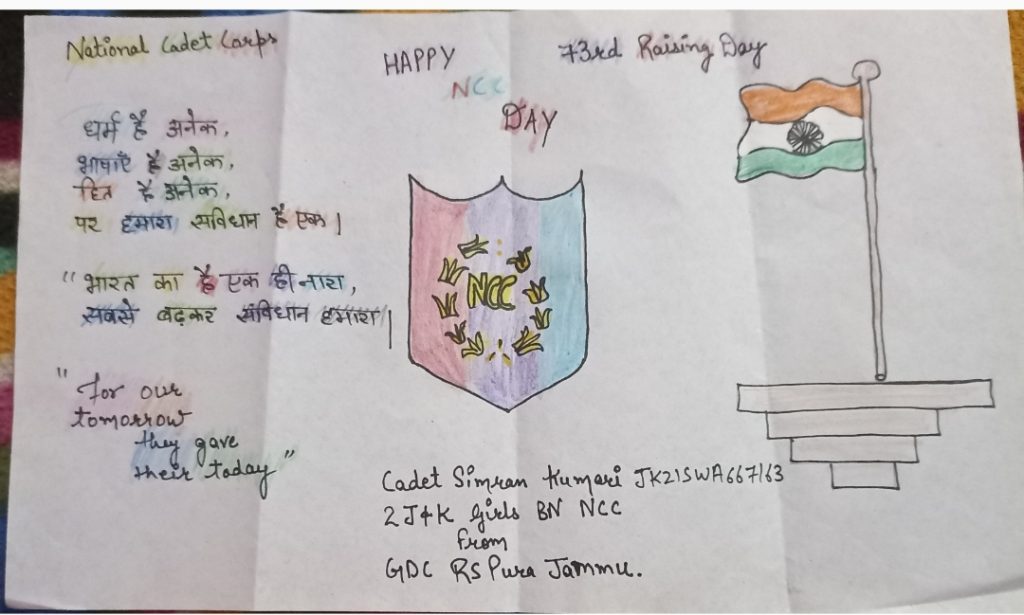 National Cadet Corps
HAPPY
NCC
DAY
73rd Raising Day
धर्म है अनेक,
भाषाएँ है अनेक,
हित है अनेक,
पर हमारा सविधान है एक।
"भारत का है एक ही नारा,
सबसे बढ़कर संविधान हमारा।
"for our
tomorrow
they gave
their today"
NCC
Cadet Simran Kumari JK21SWA667163
2J&K Girls BN NCC
from
GDC RS Pura Jammu.